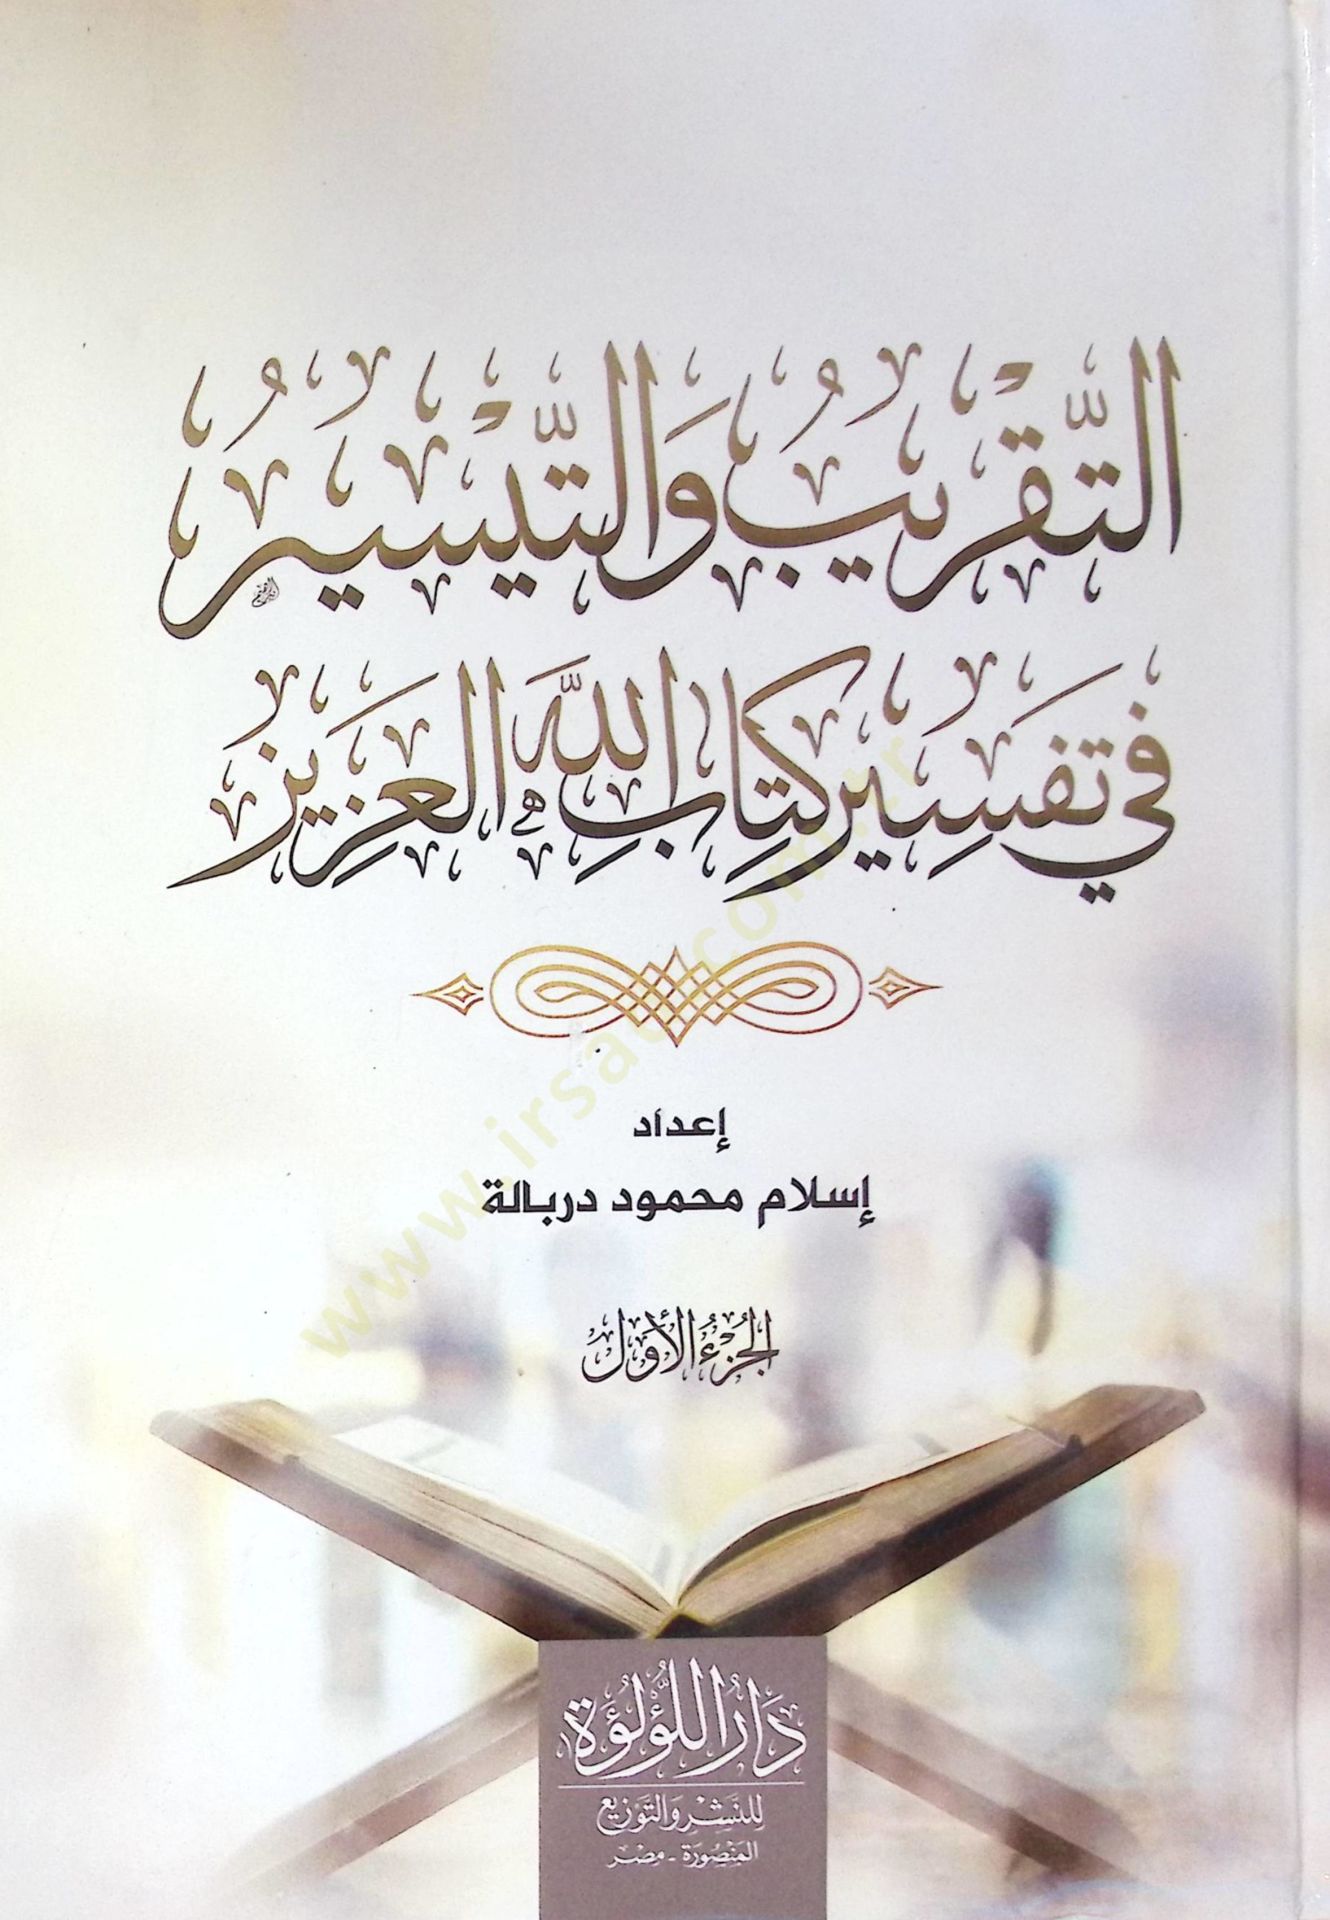 التَّقْرِيبُ وَالتَّيْسِيرُ
فِي تَفْسِيرِ كِتَابِ اللَّهِ الْعَزِيزِ
إعداد
إسلام محمود دربالة
الجُزْءُ الأَوَّلُ
دَارُ اللُّؤْلُؤَةِ
لِلنَّشْرِ وَالتَّوْزِيعِ
المَنْصُورَة - مِصْر
www.irsad.com.tr